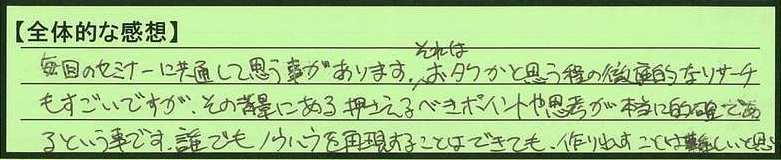 【全体的な感想】
毎回のセミナーに共通して思う事があります。それは、オタクかと思う程の徹底的なリサーチ
もすごいですが、その背景にある押さえるべきポイントや思考が本当に的確であ
るという事です。誰でもノウハウを再現することはできても、作りだすことは難しいと思